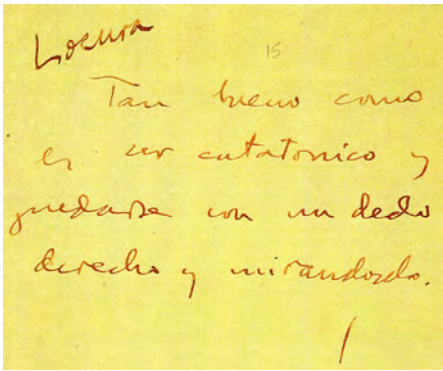 Locura
15
Tan bueno como
es ser catatonico y
quedarse con un dedo
derecho y mirandoselo.